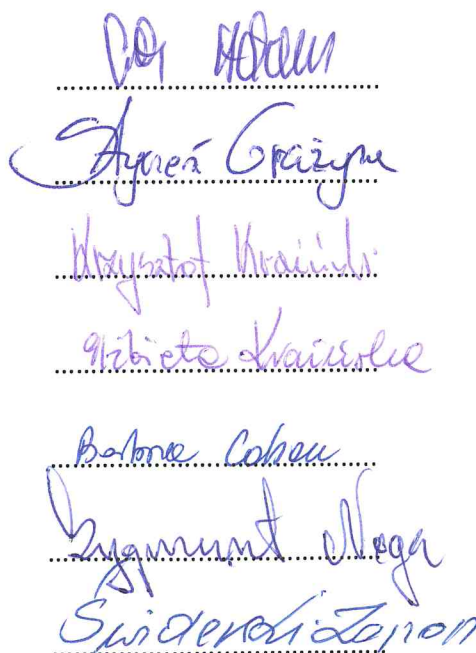 Adam
Grażyna
Krzysztof Kraiński
Elżbieta Kraińska
Barbara Cohen
Zygmunt Noga
Świderski